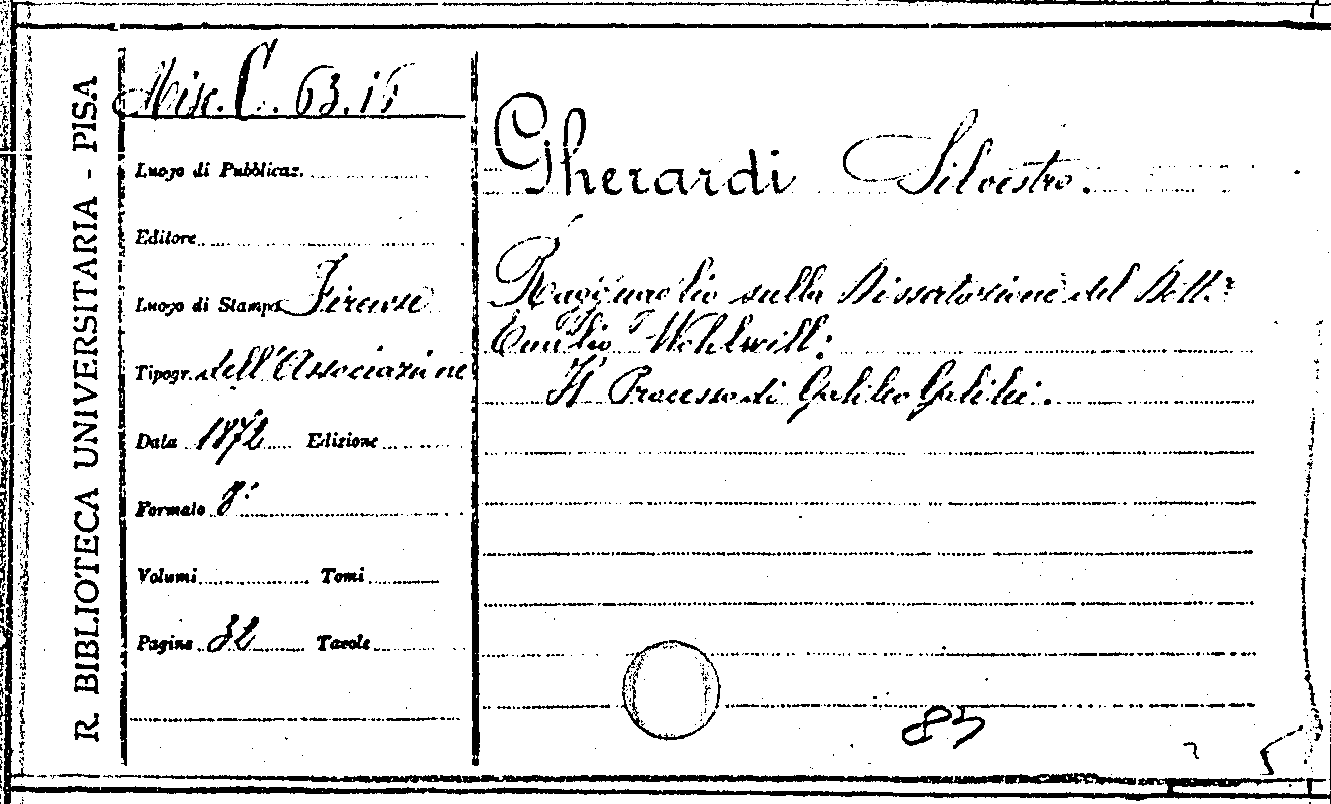 R. BIBLIOTECA UNIVERSITARIA - PISA
Misc. C. 63.15
Luogo di Pubblicaz.
Editore
Luogo di Stampa Firenze
Tipogr. dell'Associazione
Data 1872 Edizione
Formato 8°
Volumi Tomi
Pagine 32 Tavole
Gherardi Silvestro.
Ragguaglio sulla Dissertazione del Dott.r
Emilio Wohlwill:
Il Processo di Galileo Galilei.
83
5